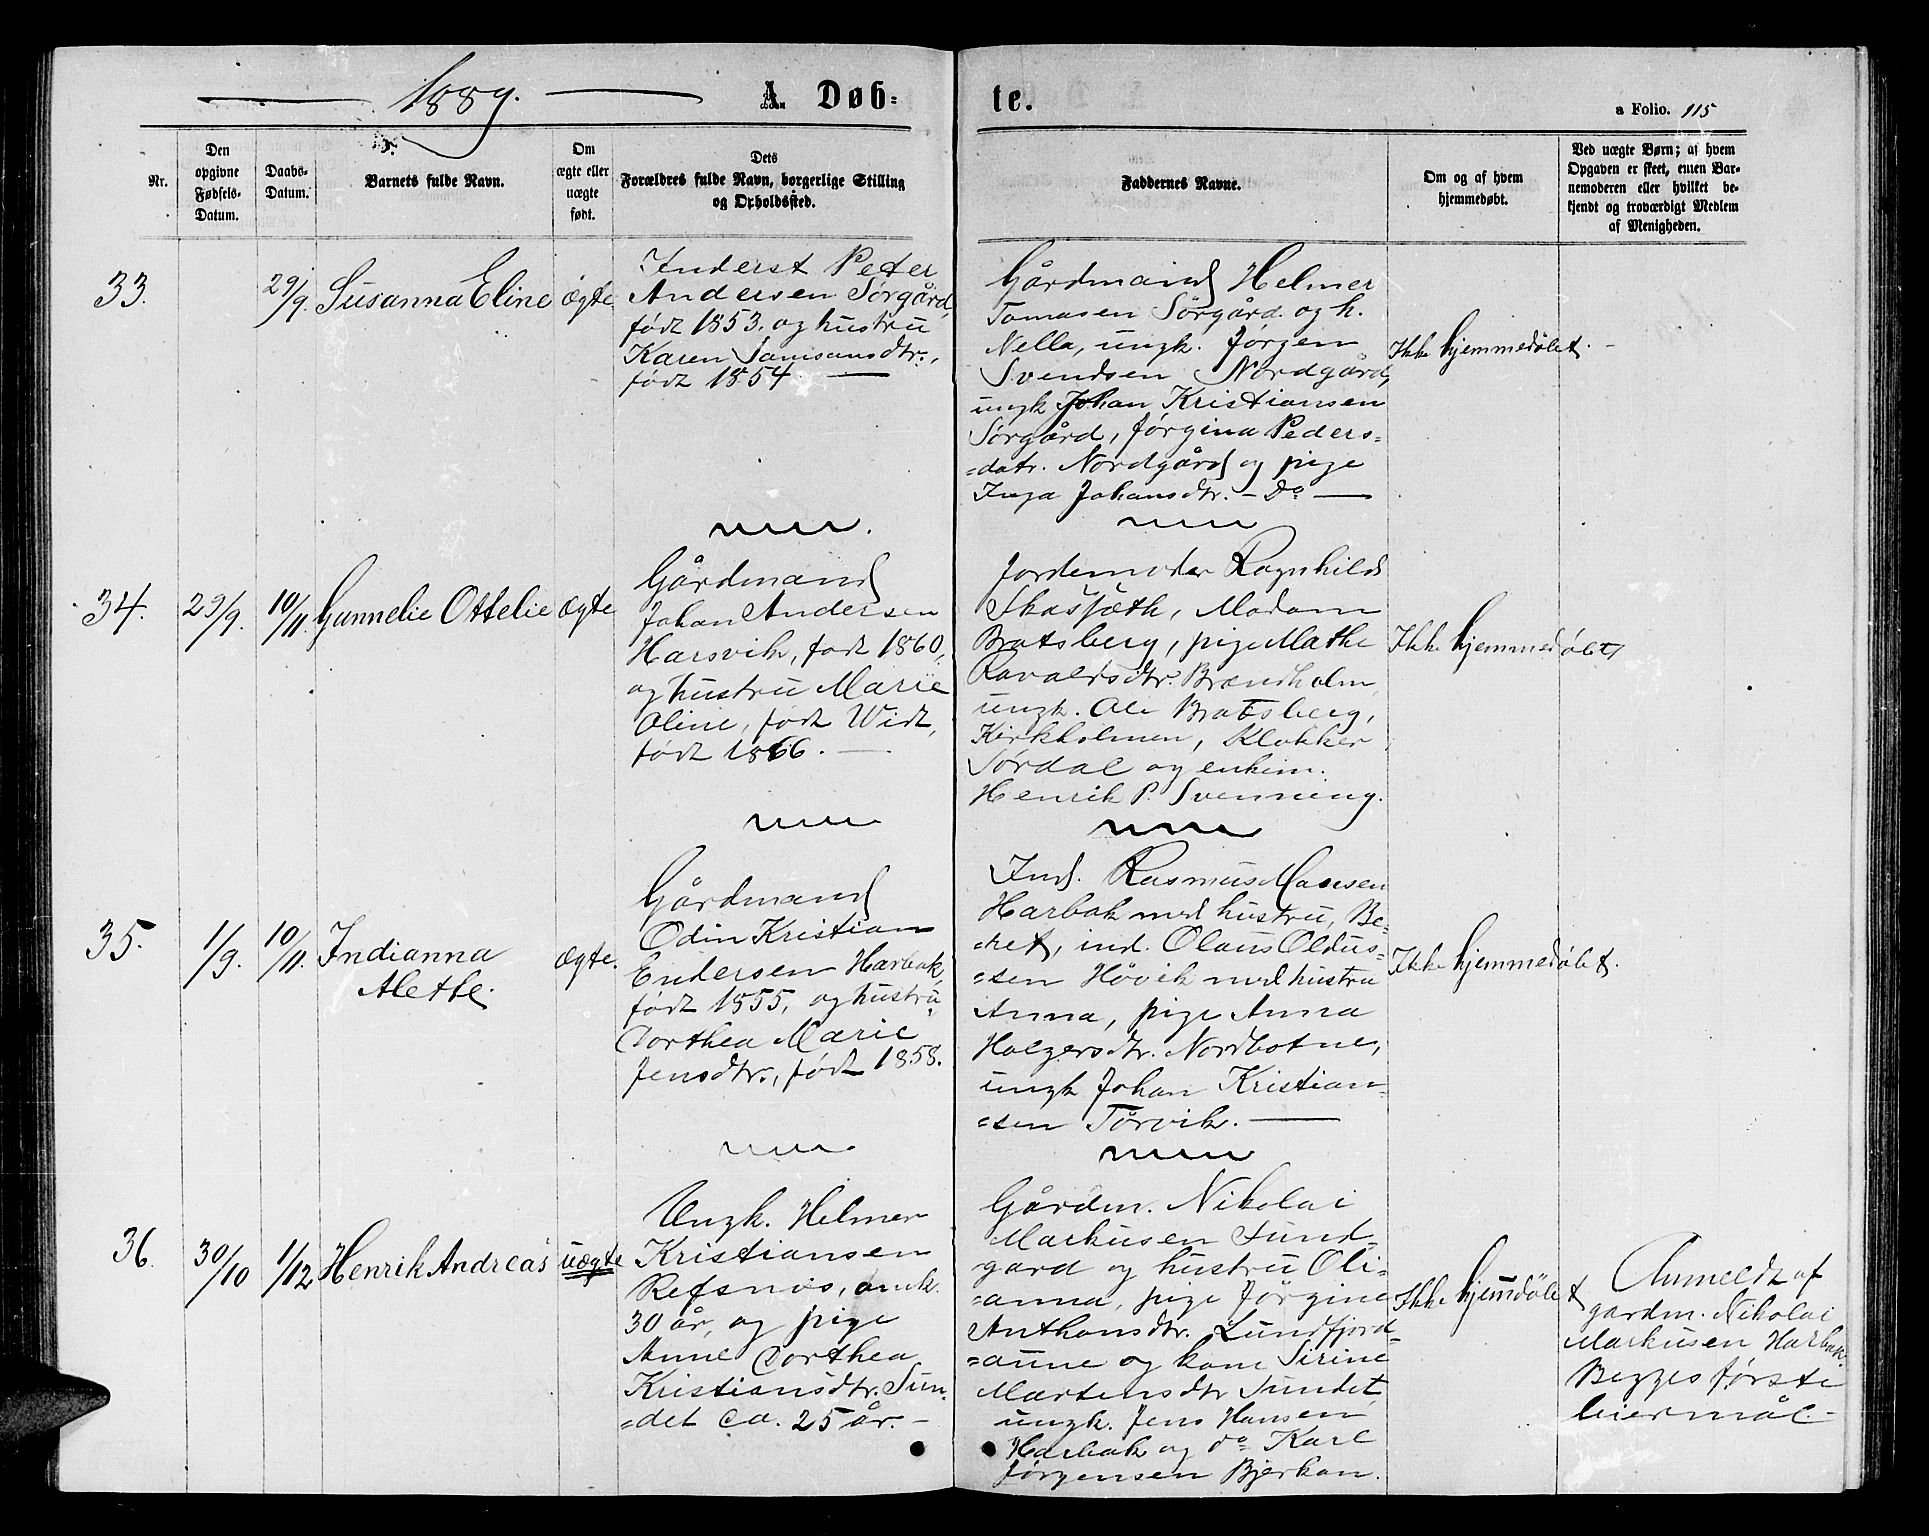 1889.
A. Døb-
te.
a Folio. 115
Nr.
Den
opgivne
Fødsels-
Datum.
Daabs-
Datum.
Barnets fulde Navn.
Om
ægte eller
uægte
født.
Dets
Forældres fulde Navn, borgerlige Stilling
og Opholdssted.
Faddernes Navne.
Om og af hvem
hjemmedøbt.
Ved uægte Børn; af hvem
Opgaven er skeet, enten Bar-
nemoderen eller hvilket be-
kjendt og troværdigt Medlem
af Menigheden.
33.
29/9.
Susanna Eline
Ægte.
Inderst Peter
Andersen Sørgård,
født 1853, og hustru
Karen Samsonsdtr.,
født 1854.
Gårdmand Helmer
Tomasen Sørgård og h.
Nella, ungk. Jørgen
Svendsen Nordgård,
ungk Johan Kristiansen
Sørgård, Jørgina Peders=
=datr. Nordgård og pige
Inga Johansdtr. - Do
Ikke hjemmedøbt.
34.
29/9.
10/11.
Gunnelie Ottelie
Ægte
Gårdmand
Johan Andersen
Harsvik, født 1860,
og hustru Marie
Oline, født Widt,
født 1866.
Jordemoder Ragnhild
Skasfæth, Madam
Bratsberg, pige Mathe
Ravaldsdtr. Brændholm,
ungk. Ole Bratsberg,
Kirkholmen, Klokker
Sørdal og enkem.
Henrik P. Svenning.
Ikke hjemmedøbt
35.
1/9.
10/11.
Indianna
Alette.
Ægte.
Gårdmand
Odin Kristian
Endersen Harbak,
født 1855, og hustru
Dorthea Marie
Jensdtr., født 1858.
Ind. Rasmus Hansen
Harbak med hustru, Be=
=ret, ind. Olaus Oldus=
=sen Høvik med hustru
Anna, pige Anna
Holgersdtr. Nordbotne,
ungk Johan Kristian=
=sen Tørvik.
Ikke hjemmedøbt.
36.
30/10
1/12
Henrik Andreas
uægte
Ungk. Helmer
Kristiansen
Refsnes, omk.
30 år, og pige
Anne Dorthea
Kristiansdtr. Sun=
=det ca. 25 år.
Gårdm. Nikolai
Markusen Sund=
gård og hustru Oli=
=anna, pige Jørgine
Anthonsdtr. Lundfjord=
=aune og kone Sirine
Martensdtr Sundet,
ungk. Jens Hansen
Harbak og do Karl
Jørgensen Bjørkan.
Ikke hjemdøbt
Anmeldt af
gardm. Nikolai
Markusen Harbak.
Begges første
leiermål.